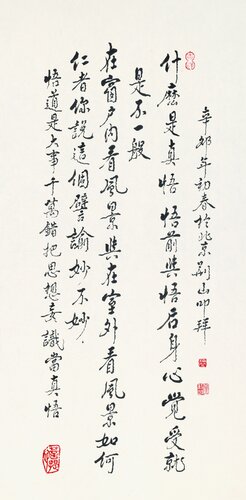 什麽是真悟悟前與悟后身心覺受就
是不一般
在窗戶內看風景與在室外看風景如何
仁者你說這個譬諭妙不妙
悟道是大事千萬錯把思想妄識當真悟
辛卯年初春於北京
山叩拜